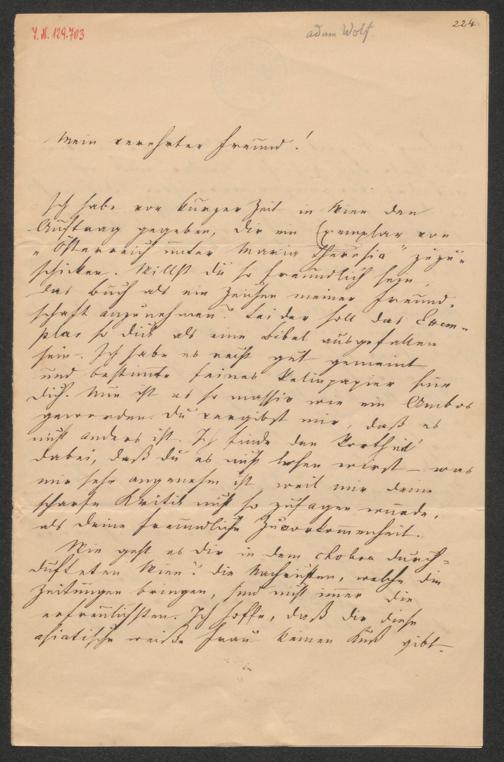 I. N. 129.703
adam Wolf
224
Mein verehrter Freund!
Ich habe vor kurzer Zeit in Wien den
Auftrag gegeben, Dir ein Exemplar von
„Österreich unter Maria Theresia" zuzu=
schicken. Willst Du so freundlich seyn,
das Buch als ein Zeichen meiner Freund=
schaft anzunehmen? Leider soll das Exem=
plar so dick als eine Bibel ausgefallen
sein. Ich habe es recht gut gemeint
und bestimmte feines Velinpapier für
Dich. Nun ist es so massiv wie ein Ambos
geworden. Du vergibst mir, daß es
nicht anders ist. Ich finde den Vortheil
dabei, daß Du es nicht lesen wirst – was
mir sehr angenehm ist, weil mir Deine
scharfe Kritik nicht so zusagen würde,
als Deine freundliche Zuvorkommenheit.
Wie geht es Dir in dem cholera durch=
dufteten Wien? Die Nachrichten, welche die
Zeitungen bringen, sind nicht immer die
erfreulichsten. Ich hoffe, daß Dir diese
asiatische weiße Frau keinen Kuß gibt.